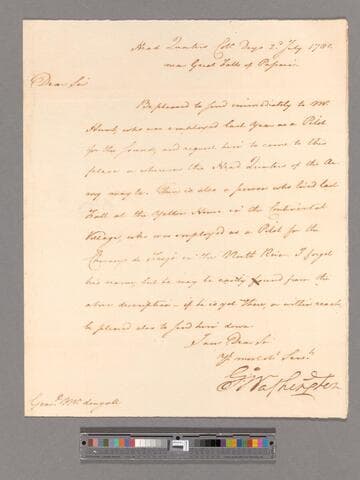 Head Quarters Colo. Deys 2d July 1780.
near Great Falls of Pasaic.
Dear Sir
Be pleased to send immediately to Mr
Hunt, who was employed last year as a Pilot
for the Sound, and request him to come to this
place or wherever the Head Quarters of the Ar
my may be. There is also a person who lived last
Fall at the Yellow House in the Continental
Village, who was employed as a Pilot for the
in the North River. I forget
his name, but he may be easily found from the
above description - if he is yet there, or within reach
be pleased also to send him down.
I am Dear Sir
Yr most obt Servt
Go Washington
Genl. McDougall